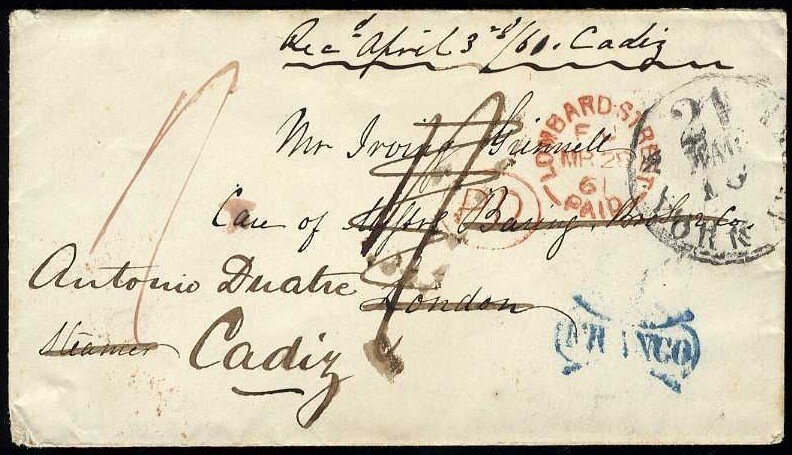 Rec.d April 3rd/61. Cadiz
Mr Irving Grinnell
Care of Messrs Baring, Brothers Co.
Antonio Duatre London
Steamer Cadiz
LOMBARD STREET
MR 28
61
PAID
PD
21
MAR
YORK
FRANCO